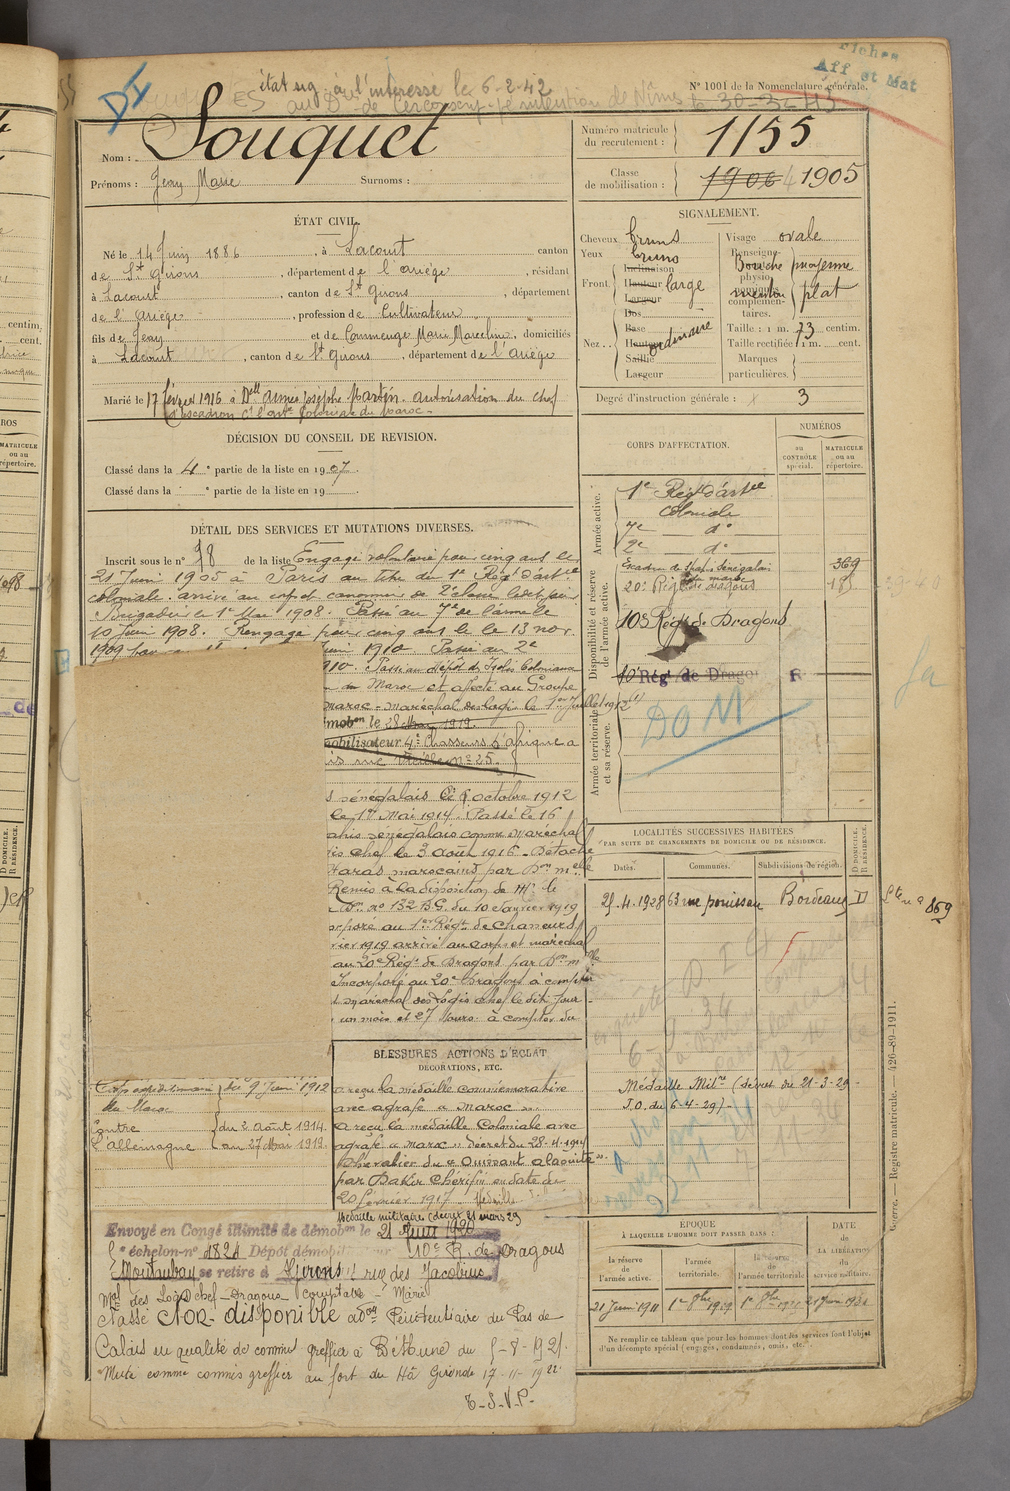 Fiches
Aff et Mat
état sig à l'intéressé le 6-2-42
N° 1001 de la Nomenclature générale.
le 30-3-43
DI
Nom : Souquet
Prénoms : Jean Marie Surnoms :
Numéro matricule du recrutement : 1155
Classe de mobilisation : 1906 4 1905
ÉTAT CIVIL.
Né le 14 Juin 1886, à Lacourt canton
de St Girons, département de l'Ariège, résidant
à Lacourt, canton de St Girons, département
de l'Ariège, profession de Cultivateur
fils de Jean et de Commenge Marie Marceline, domiciliés
à Lacourt, canton de St Girons, département de l'Ariège
Marié le 17 février 1916 à Delle Aimée Josèphe Martin. autorisation du chef
d'escadron ct l'artie Coloniale du Maroc.
SIGNALEMENT.
Cheveux bruns
Yeux bruns
Front Inclinaison Hauteur Largeur large
Nez Dos Base Hauteur Saillie Largeur ordinaire
Visage ovale
Renseignements physionomiques complémentaires. Bouche moyenne
menton plat
Taille : 1 m. 73 centim.
Taille rectifiée 1 m. cent.
Marques particulières.
Degré d'instruction générale : 3
DÉCISION DU CONSEIL DE REVISION.
Classé dans la 4e partie de la liste en 1907
Classé dans la e partie de la liste en 19
DÉTAIL DES SERVICES ET MUTATIONS DIVERSES.
Inscrit sous le n° 78 de la liste Engagé volontaire pour cinq ans le
21 Juin 1905 à Paris au titre du 1e Régt d'artie
coloniale. arrivé au corps et canonnier de 2e classe ledit jour
Brigadier le 1e Mai 1908. Passé au 7e de l'arme le
10 Juin 1908. Rengagé pour cinq ans le 13 nov.
1909
Juin 1910. Passé au 2e
1910. Passé au dépôt des Isolés Coloniaux
du Maroc et affecté au Groupe
Maroc - Maréchal des logis le 1er Juillet 1912
démobon le 28 Mai 1919.
mobilisateur 4e Chasseurs d'Afrique a
rue Vieille n° 25.
s sénégalais le 6 octobre 1912
le 1er Mai 1914. Passé le 16
Spahis sénégalais comme Maréchal
gis chef le 3 Août 1916 - Détaché
Haras marocains par Don melle
Remis à la disposition de Mr le
Don n° 132 BG du 10 Janvier 1919
orporé au 1er Régt de Chasseurs
rier 1919 arrivé au corps et maréchal
au 20e Régt de Dragons par Don mlle
Incorporé au 20e Dragons à compter
t maréchal des Logis chef le dit jour
un mois et 27 jours à compter du
CORPS D'AFFECTATION.
NUMÉROS
au CONTRÔLE spécial.
MATRICULE ou au répertoire.
Armée active.
1e Régt d'artie
Coloniale
7e — d°
2e — d°
Disponibilité et réserve de l'armée active.
Escadron de Spahis Sénégalais du maroc 369
20e Régt de dragons 185
10e Régt de Dragons
10e Rég' de Dragons R
Armée territoriale et sa réserve.
DOM
LOCALITÉS SUCCESSIVES HABITÉES
PAR SUITE DE CHANGEMENTS DE DOMICILE OU DE RÉSIDENCE.
Dates. Communes. Subdivisions de région. D DOMICILE. R RÉSIDENCE.
25.4.1928 63 rue Bordeaux D 869
Médaille Milre (décret du 21-3-29 -
J.O. du 6-4-29) -
BLESSURES ACTIONS D'ÉCLAT
DECORATIONS, ETC.
a reçu la médaille commémorative
avec agrafe « Maroc »
a reçu la médaille Coloniale avec
agrafe « Maroc » décret du 28-4-1914
Chevalier du « Ouissant Alaouite »
par Dahir Chérifien en date du
20 février 1917. Médaille
Médaille militaire (décret 21 mars 29
Corps expéditionnaire du Maroc du 9 Juin 1912
Contre l'Allemagne du 2 août 1914. au 27 Mai 1919.
Envoyé en Congé illimité de démobon le 21 Juin 1920
échelon-n° 1821 Dépôt démobilisateur 10e R. de Dragons
Montauban se retire à St Girons rue des Jacobins
Mal des Logis chef - Dragons - comptable - Marié
Classé Non-disponible adon Pénitentiaire du Pas de
Calais en qualité de commis greffier à Béthune du 5-8-1921.
Muté comme commis greffier au fort du Hâ Gironde 17-11-1922
T-S-V-P-
ÉPOQUE
À LAQUELLE L'HOMME DOIT PASSER DANS :
la réserve de l'armée active.
l'armée territoriale.
la réserve de l'armée territoriale
DATE de LA LIBÉRATION du service militaire.
21 Juin 1911
Ne remplir ce tableau que pour les hommes dont les services font l'objet
d'un décompte spécial (engagés, condamnés, omis, etc.).
Guerre. — Registre matricule. — 426-89-1911.